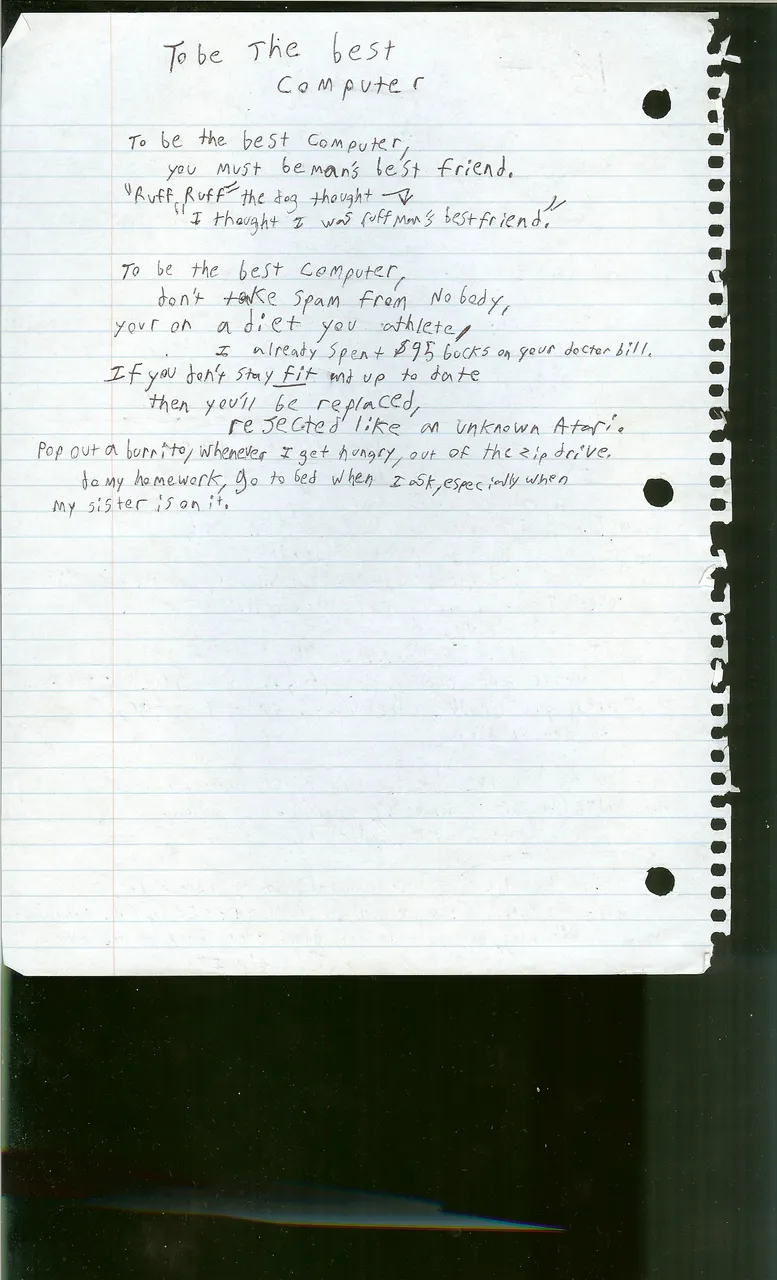 To be The best
Computer
To be the best Computer,
you must be man's best friend.
"Ruff, Ruff" the dog thought
"I thought I was ruff man's best friend."
To be the best Computer,
don't take spam from Nobody,
your on a diet you athlete,
I already spent $95 bucks on your doctor bill.
If you don't stay fit and up to date
then you'll be replaced,
rejected like an unknown Atari.
Pop out a burrito, whenever I get hungry, out of the zip drive.
do my homework, go to bed when I ask, especially when
my sister is on it.